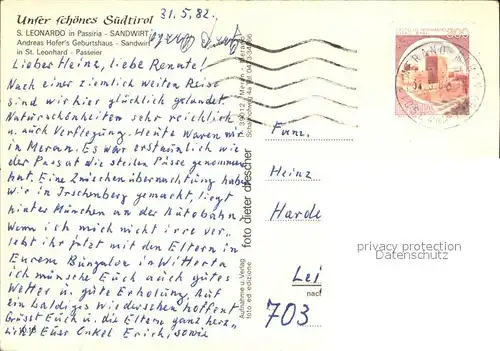 Unser schönes Südtirol
31.5.82.
S. LEONARDO in Passiria - SANDWIRT
Andreas Hofer's Geburtshaus - Sandwirt
in St. Leonhard - Passeier
Lieber Heinz, liebe Renate!
Nach einer ziemlich weiten Reise
sind wir hier glücklich gelandet.
Naturschönheiten sehr reichlich
u. auch Verpflegung. Heute waren wir
in Meran. Es war erstaunlich wie
der Passat die steilen Pässe genommen
hat. Eine Zwischenübernachtung haben
wir in Irschenberg gemacht, liegt
hinter München an der Autobahn.
Wenn ich mich nicht irre ver-
lebt ihr jetzt mit den Eltern in
Eurem Bungalow in
ich wünsche Euch auch gutes
Wetter u. gute Erholung. Auf
ein baldiges wiedersehen hoffent.
Grüsst Euch u. die Eltern ganz herz-
lichst Euer Onkel Erich, sowie
foto dieter drescher
Aufnahme u. Verlag
foto ed edizione
300
Fam.
Heinz
Harde
Lei
nach
703
privacy protection
Datenschutz